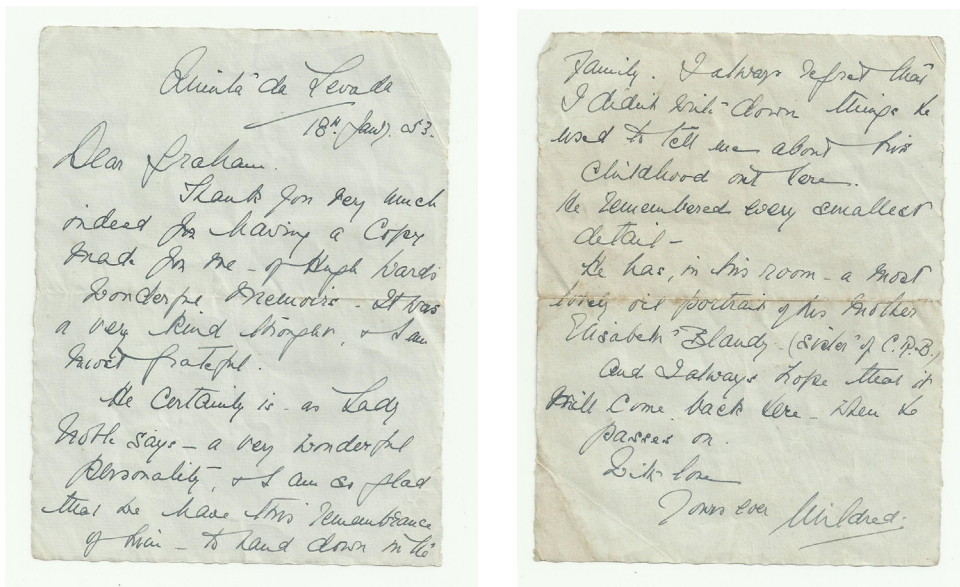 Quinta da Levada
18th Jany. 53.
Dear Graham.
Thank you very much
indeed for having a Copy
made for me - of Hugh Wards
wonderful Memoirs - It was
a very kind thought, & I am
most grateful.
He certainly is - as Lady
says - a very wonderful
personality, & I am so glad
that we have this remembrance
of him - to hand down in the
Family. I always regret that
I didn't write down things he
used to tell me about his
Childhood out here.
He remembered every smallest
detail -
He has, in his room - a most
lovely oil portrait of his Mother
Elisabeth Blandy - (sister of C.R.B.)
and I always hope that it
will come back here - when he
passes on.
With love
Yours ever Mildred.